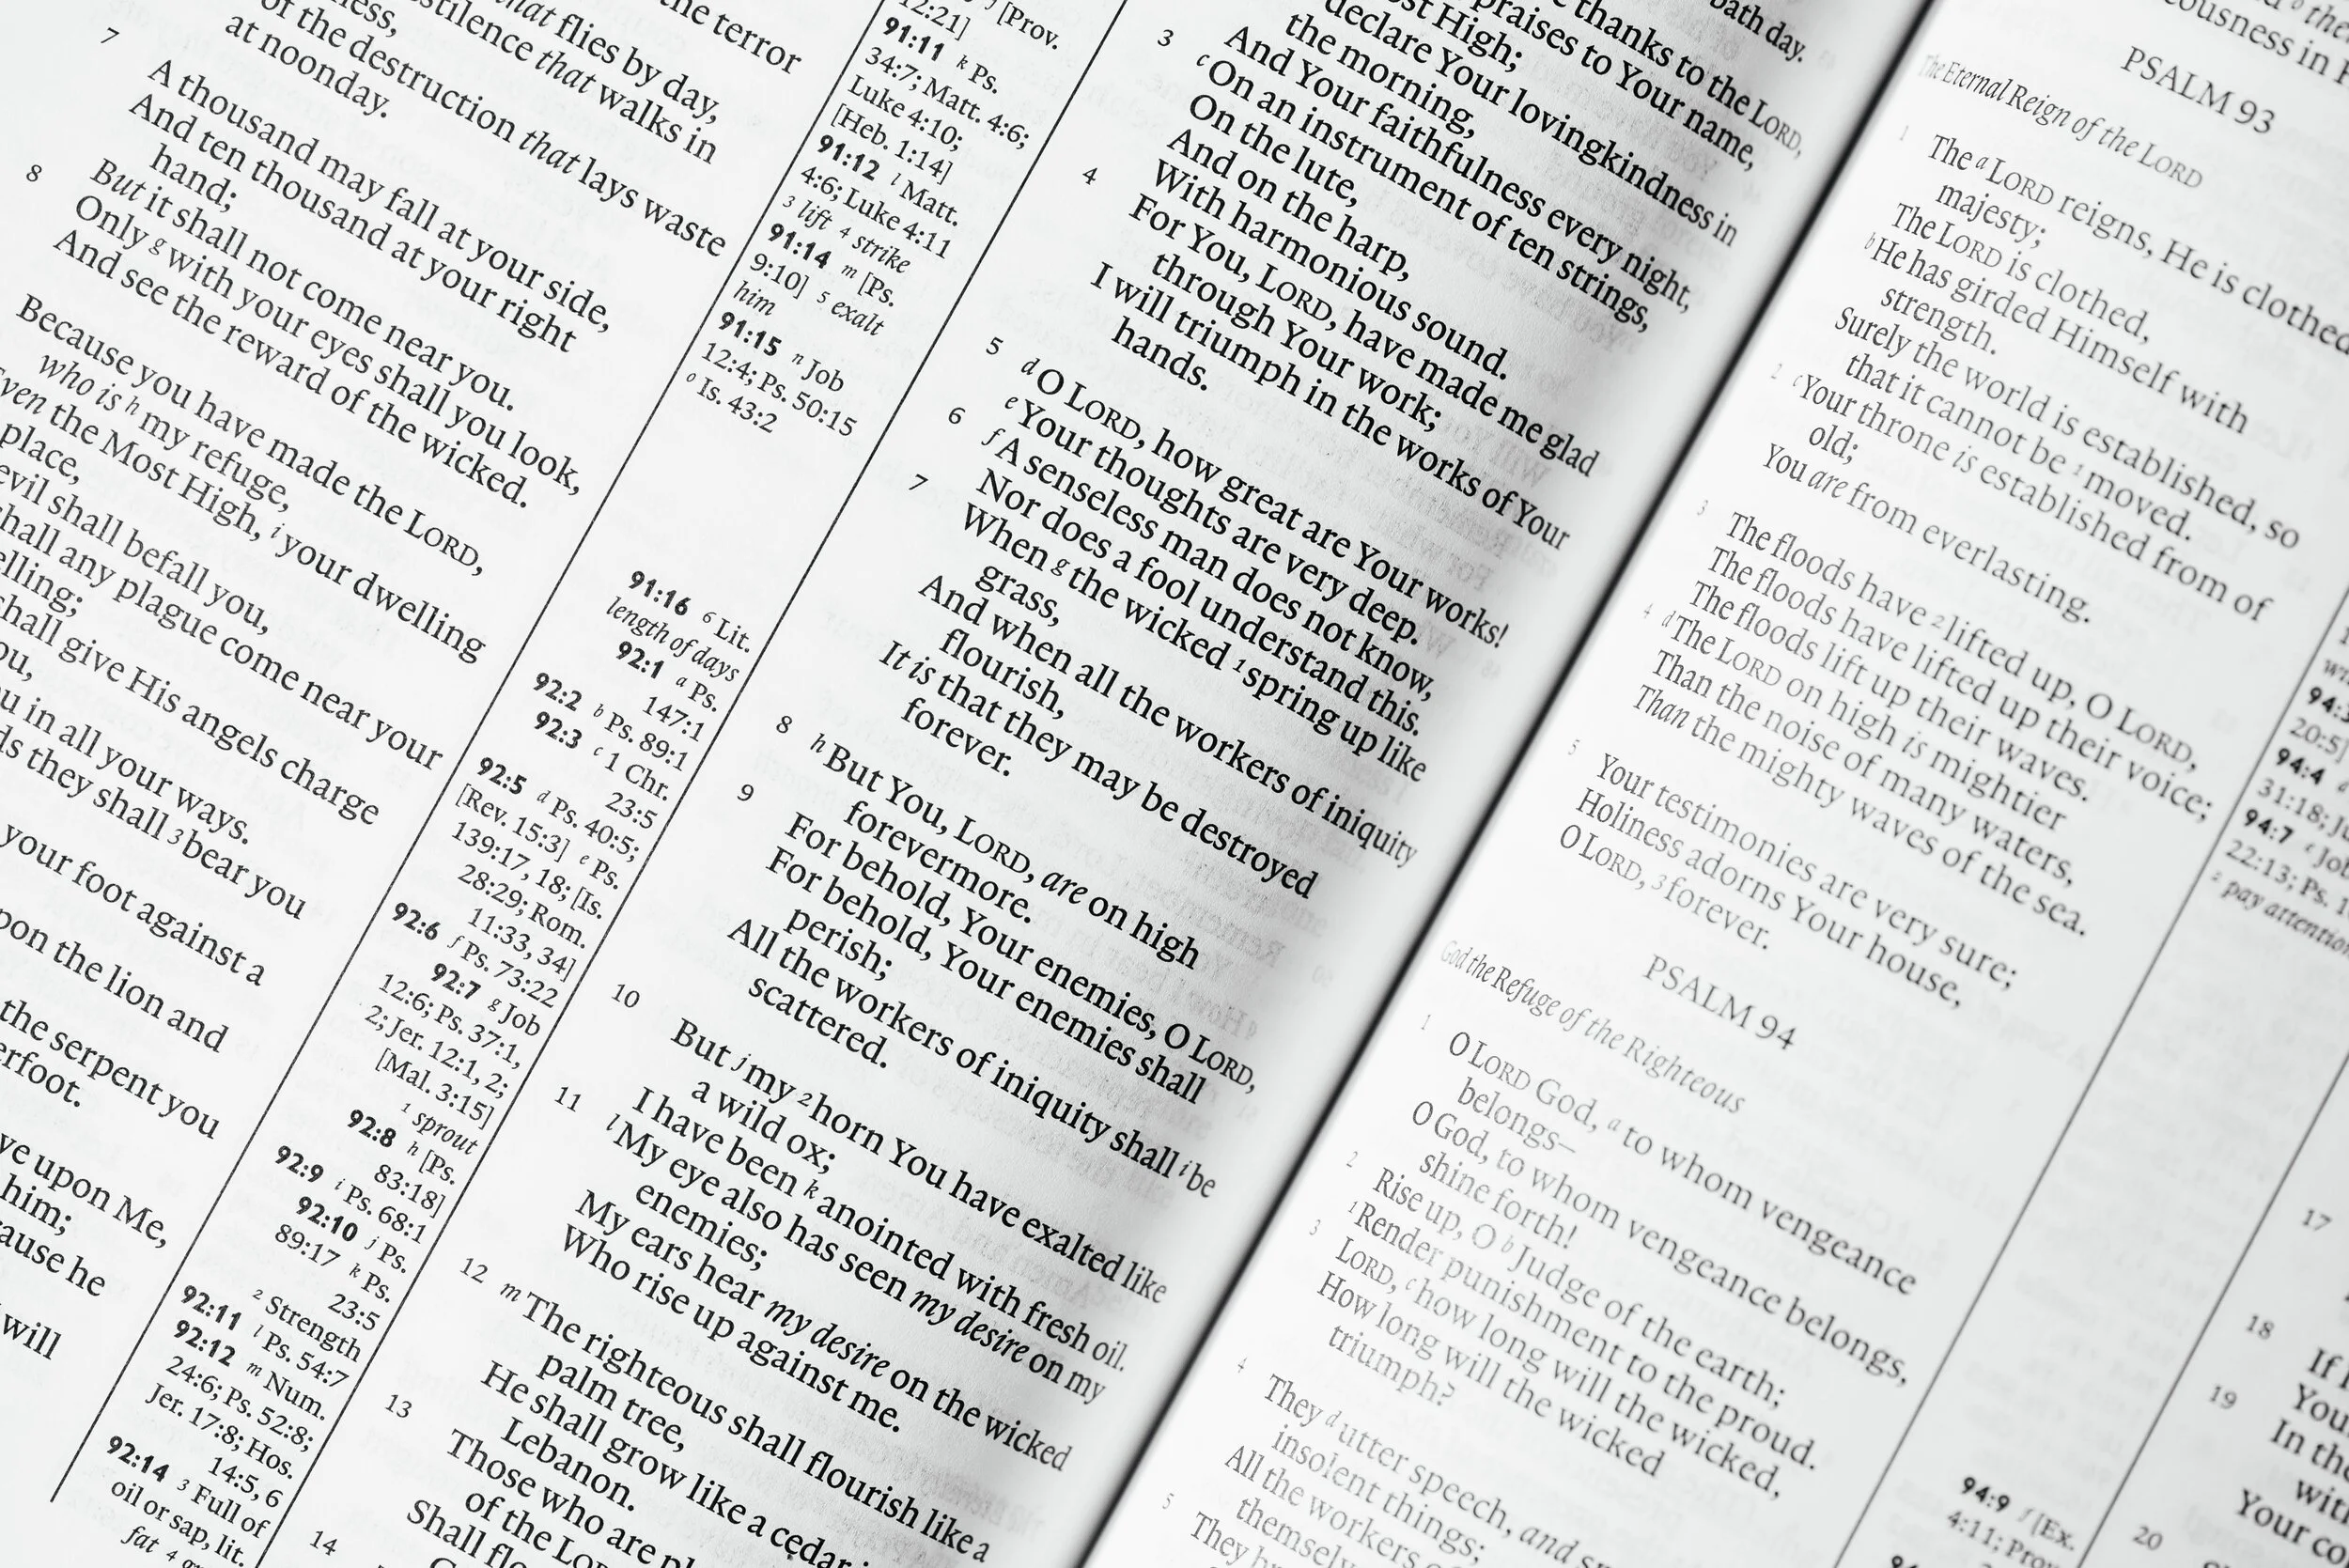 the terror
that flies by day,
that walks in
of the destruction that lays waste
at noonday.
7
A thousand may fall at your side,
And ten thousand at your right
hand;
But it shall not come near you.
8
Only g with your eyes shall you look,
And see the reward of the wicked.
Because you have made the LORD,
who is h my refuge,
the Most High, i your dwelling
place,
evil shall befall you,
shall any plague come near your
shall give His angels charge
in all your ways.
they shall 3 bear you
your foot against a
the lion and
the serpent you
upon Me,
him;
he
will
12:21] j [Prov.
91:11 k Ps.
34:7; Matt. 4:6;
Luke 4:10;
[Heb. 1:14]
91:12 l Matt.
4:6; Luke 4:11
3 lift 4 strike
91:14 m [Ps.
9:10] 5 exalt
him
91:15 n Job
12:4; Ps. 50:15
o Is. 43:2
91:16 6 Lit.
length of days
92:1 a Ps.
147:1
92:2 b Ps. 89:1
92:3 c 1 Chr.
23:5
92:5 d Ps. 40:5;
[Rev. 15:3] e Ps.
139:17, 18; [Is.
28:29; Rom.
11:33, 34]
92:6 f Ps. 73:22
92:7 g Job
12:6; Ps. 37:1,
2; Jer. 12:1, 2;
[Mal. 3:15]
1 sprout
92:8 h [Ps.
83:18]
92:9 i Ps. 68:1
92:10 j Ps.
89:17 k Ps.
23:5
2 Strength
92:11 l Ps. 54:7
92:12 m Num.
24:6; Ps. 52:8;
Jer. 17:8; Hos.
14:5, 6
92:14 3 Full of
oil or sap, lit.
fat 4
day.
thanks to the LORD,
praises to Your name,
High;
declare Your lovingkindness in
the morning,
And Your faithfulness every night,
3 c On an instrument of ten strings,
On the lute,
And on the harp,
With harmonious sound.
4 For You, LORD, have made me glad
through Your work;
I will triumph in the works of Your
hands.
5 d O LORD, how great are Your works!
e Your thoughts are very deep.
6 f A senseless man does not know,
Nor does a fool understand this.
7 When g the wicked 1 spring up like
grass,
And when all the workers of iniquity
flourish,
It is that they may be destroyed
forever.
8 h But You, LORD, are on high
forevermore.
9 For behold, Your enemies, O LORD,
For behold, Your enemies shall
perish;
All the workers of iniquity shall i be
scattered.
10 But j my 2 horn You have exalted like
a wild ox;
I have been k anointed with fresh oil.
11 l My eye also has seen my desire on my
enemies;
My ears hear my desire on the wicked
Who rise up against me.
12 m The righteous shall flourish like a
palm tree,
He shall grow like a cedar
Lebanon.
13 Those who are
of the LORD
Shall
14
PSALM 93
The Eternal Reign of the LORD
1 The a LORD reigns, He is clothed
majesty;
The LORD is clothed,
b He has girded Himself with
strength.
Surely the world is established, so
that it cannot be 1 moved.
2 c Your throne is established from of
old;
You are from everlasting.
3 The floods have 2 lifted up, O LORD,
The floods have lifted up their voice;
The floods lift up their waves.
4 d The LORD on high is mightier
Than the noise of many waters,
Than the mighty waves of the sea.
5 Your testimonies are very sure;
Holiness adorns Your house,
O LORD, 3 forever.
PSALM 94
God the Refuge of the Righteous
1 O LORD God, a to whom vengeance
belongs—
O God, to whom vengeance belongs,
shine forth!
2 Rise up, O b Judge of the earth;
1 Render punishment to the proud.
3 LORD, c how long will the wicked,
How long will the wicked
triumph?
4 They d utter speech, and
insolent things;
All the workers
5 They
20:5]
94:4
31:18;
94:7
22:13; Ps.
2 pay attention
94:9 f [Ex.
4:11;
17
18
If
19
In the
Your
20